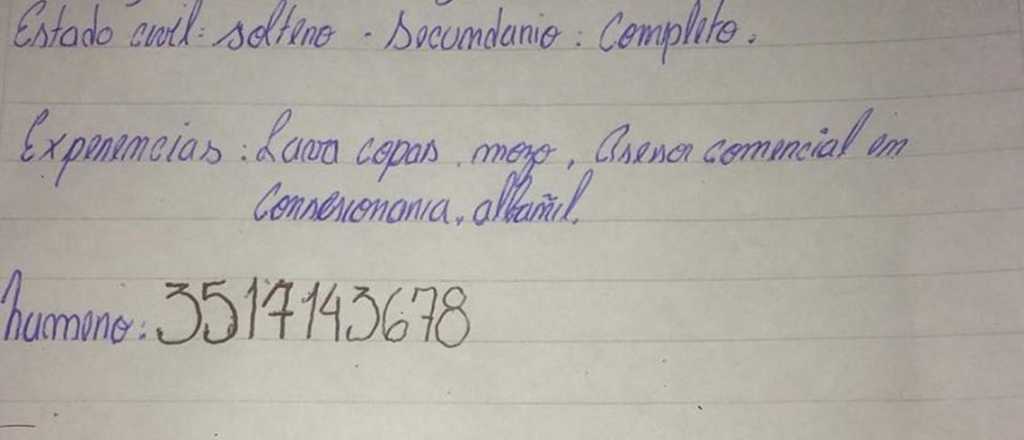 Estado civil: soltero - Secundario: Completo.
Experiencias: Lava copas, mozo, Asesor comercial en
Consesionaria, albañil.
humero: 3517143678